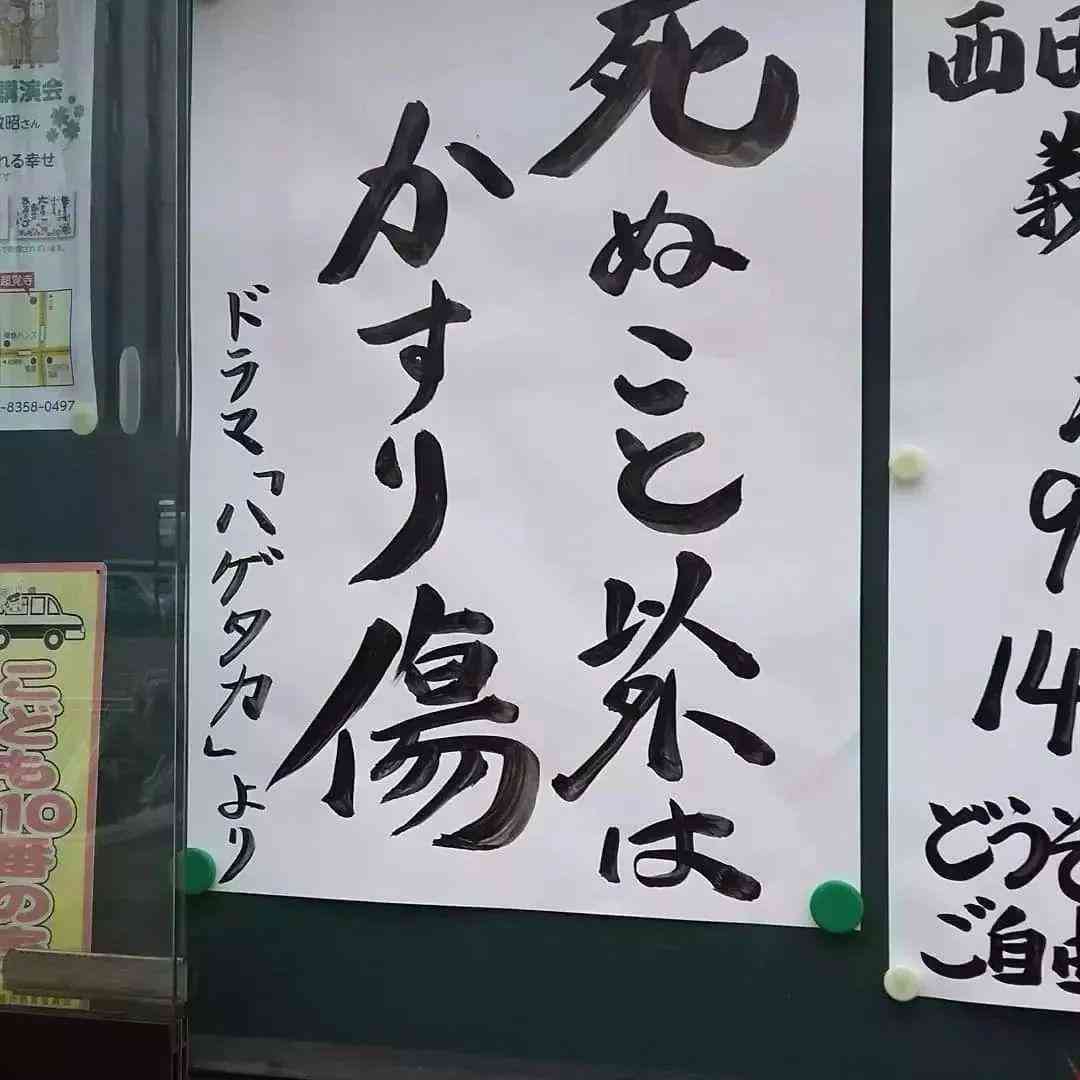 死ぬこと以外は
かすり傷
ドラマ「ハゲタカ」より
西田
義
9
14
どうぞ
ご自由
講演会
昭さん
れる幸せ
-8358-0497
こども10番の